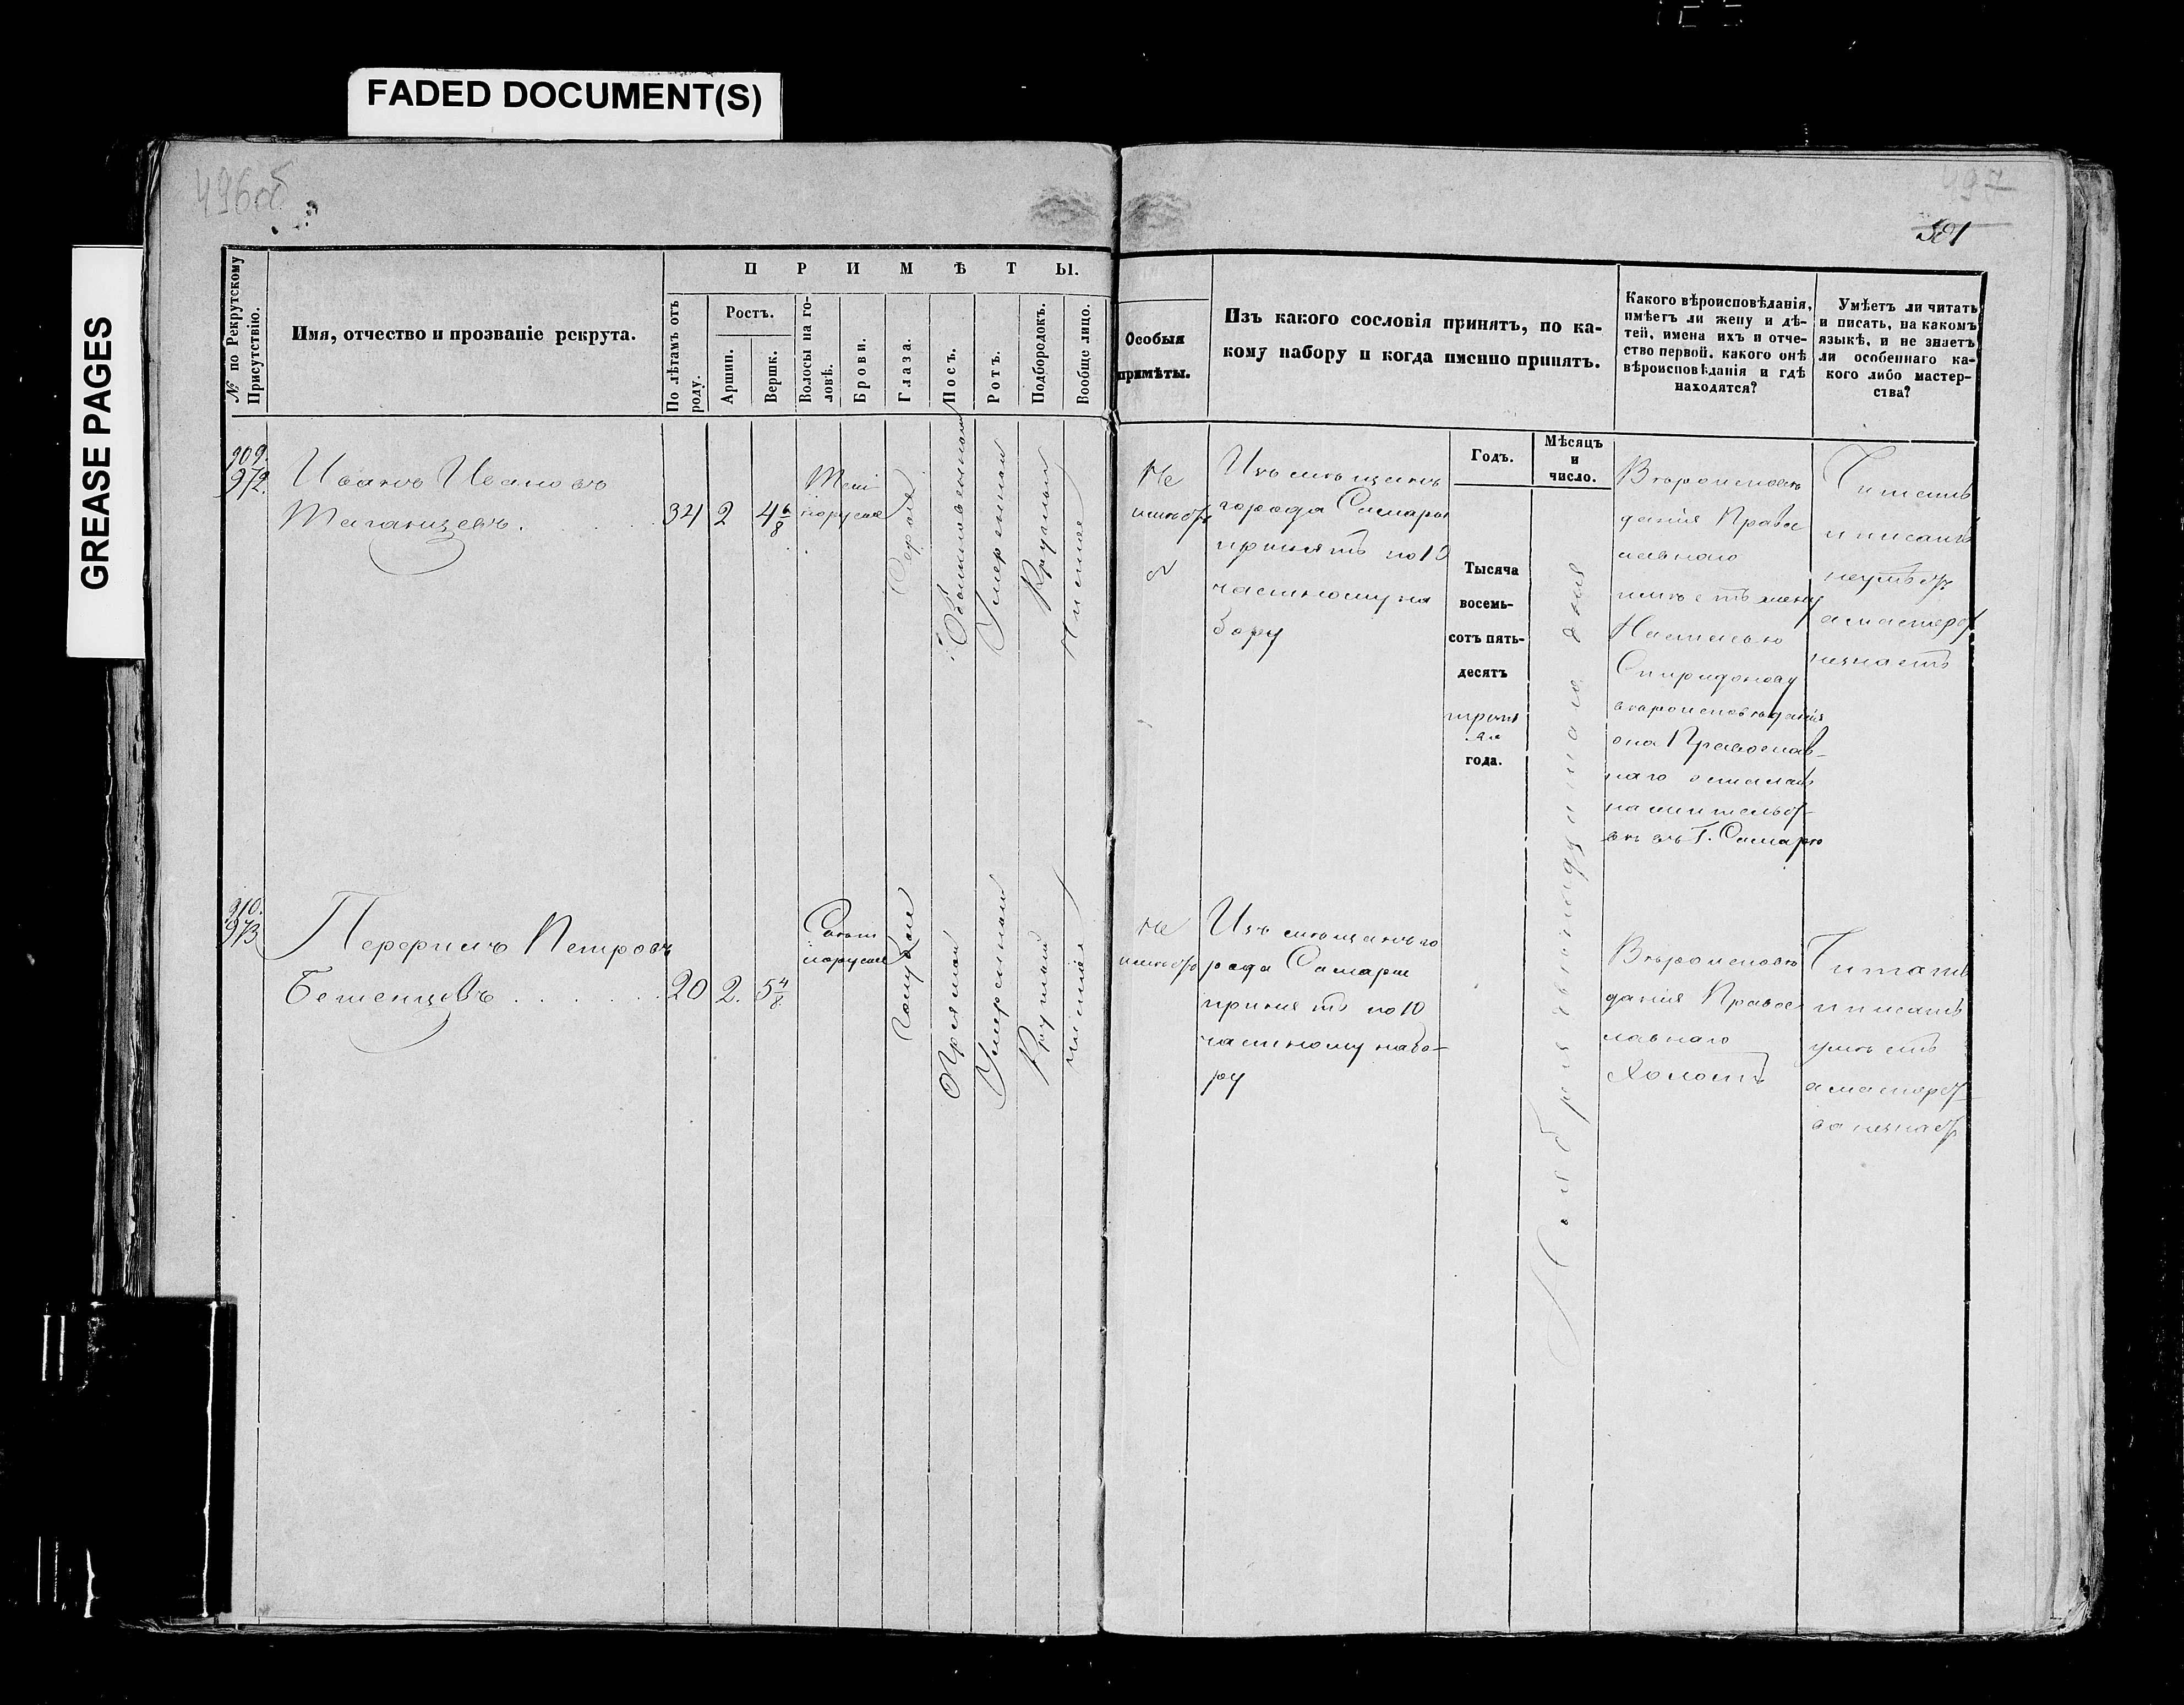 FADED DOCUMENT(S)
GREASE PAGES
496об
497
381
№ по Рекрутскому Присутствію.
Имя, отчество и прозваніе рекрута.
ПРИМѢТЫ.
По лѣтамъ отъ роду.
Ростъ.
Аршин.
Вершк.
Волосы на головѣ.
Брови.
Глаза.
Носъ.
Ротъ.
Подбородокъ.
Вообще лицо.
Особыя
примѣты.
Изъ какого сословія принятъ, по ка-
кому набору и когда именно принятъ.
Какого вѣроисповѣданія,
имѣетъ ли жену и дѣ-
тей, имена ихъ и отче-
ство первой, какого онѣ
вѣроисповѣданія и гдѣ
находятся?
Умѣетъ ли читать
и писать, на какомъ
языкѣ, и не знаетъ
ли особеннаго ка-
кого либо мастер-
ства?
Годъ.
Мѣсяцъ
и
число.
909.
972.
Иванъ Ивановъ
Таганцевъ.
34
2
4 6/8
Темнорусые
Серые
Обыкновенной
Умеренной
Круглый
Чистое
Не
имеетъ
Изъ мещанъ
города Самары
принятъ по 10
частному на
бору
Тысяча
восемь-
сотъ пять-
десятъ
третья
го
года.
Ноября двенадцатаго дня
Вероиспове
дания Право
славнаго
имеетъ жену
Настасью
Спиридонову
вероисповедания
она Православ-
наго осталась
на жительст
ве въ Г. Самаре
Читать
и писать
неумеетъ
а мастерст
незнаетъ
910.
973
Перфилъ Петровъ
20
2.
5 4/8
Светлорусые
Голубые
Прямой
Умеренной
Круглый
Чистое
Не
имеетъ
Изъ мещанъ го
рода Самары
принятъ по 10
частному набо-
ру
Вероиспове
дания Правос
лавнаго
Холостъ
Читать
и писать
умеетъ
а мастерст
ва незнаетъ